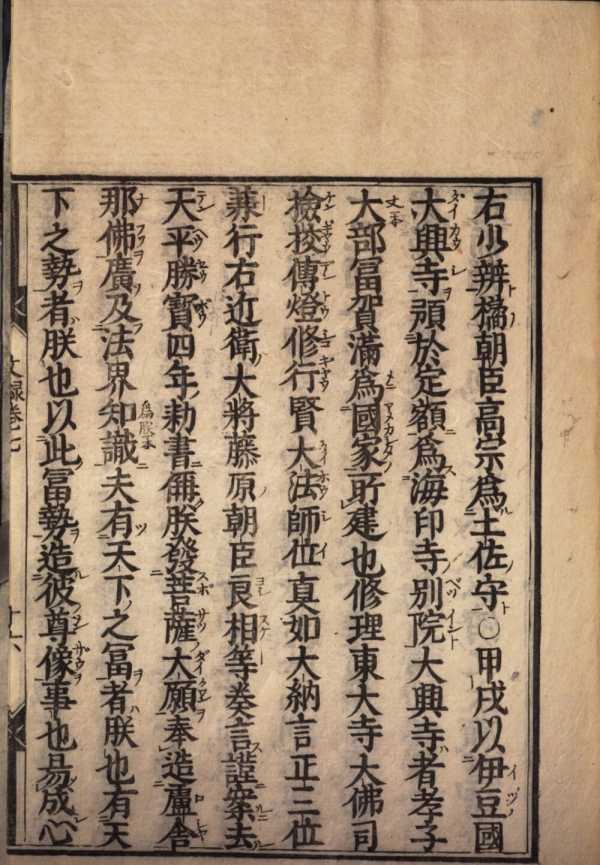 右少辨橘朝臣高宗爲土佐守○甲戌以伊豆國
大興寺預於定額爲海印寺別院大興寺者孝子
大部富賀滿爲國家所建也修理東大寺大佛司
撿挍傳燈修行賢大法師位真如大納言正三位
兼行右近衛大將藤原朝臣良相等奏言謹案去
天平勝寳四年勅書偁朕發菩薩大願奉造盧舎
那佛廣及法界知識夫有天下之富者朕也有天
下之勢者朕也以此富勢造彼尊像事也易成心
文録巻七
十六